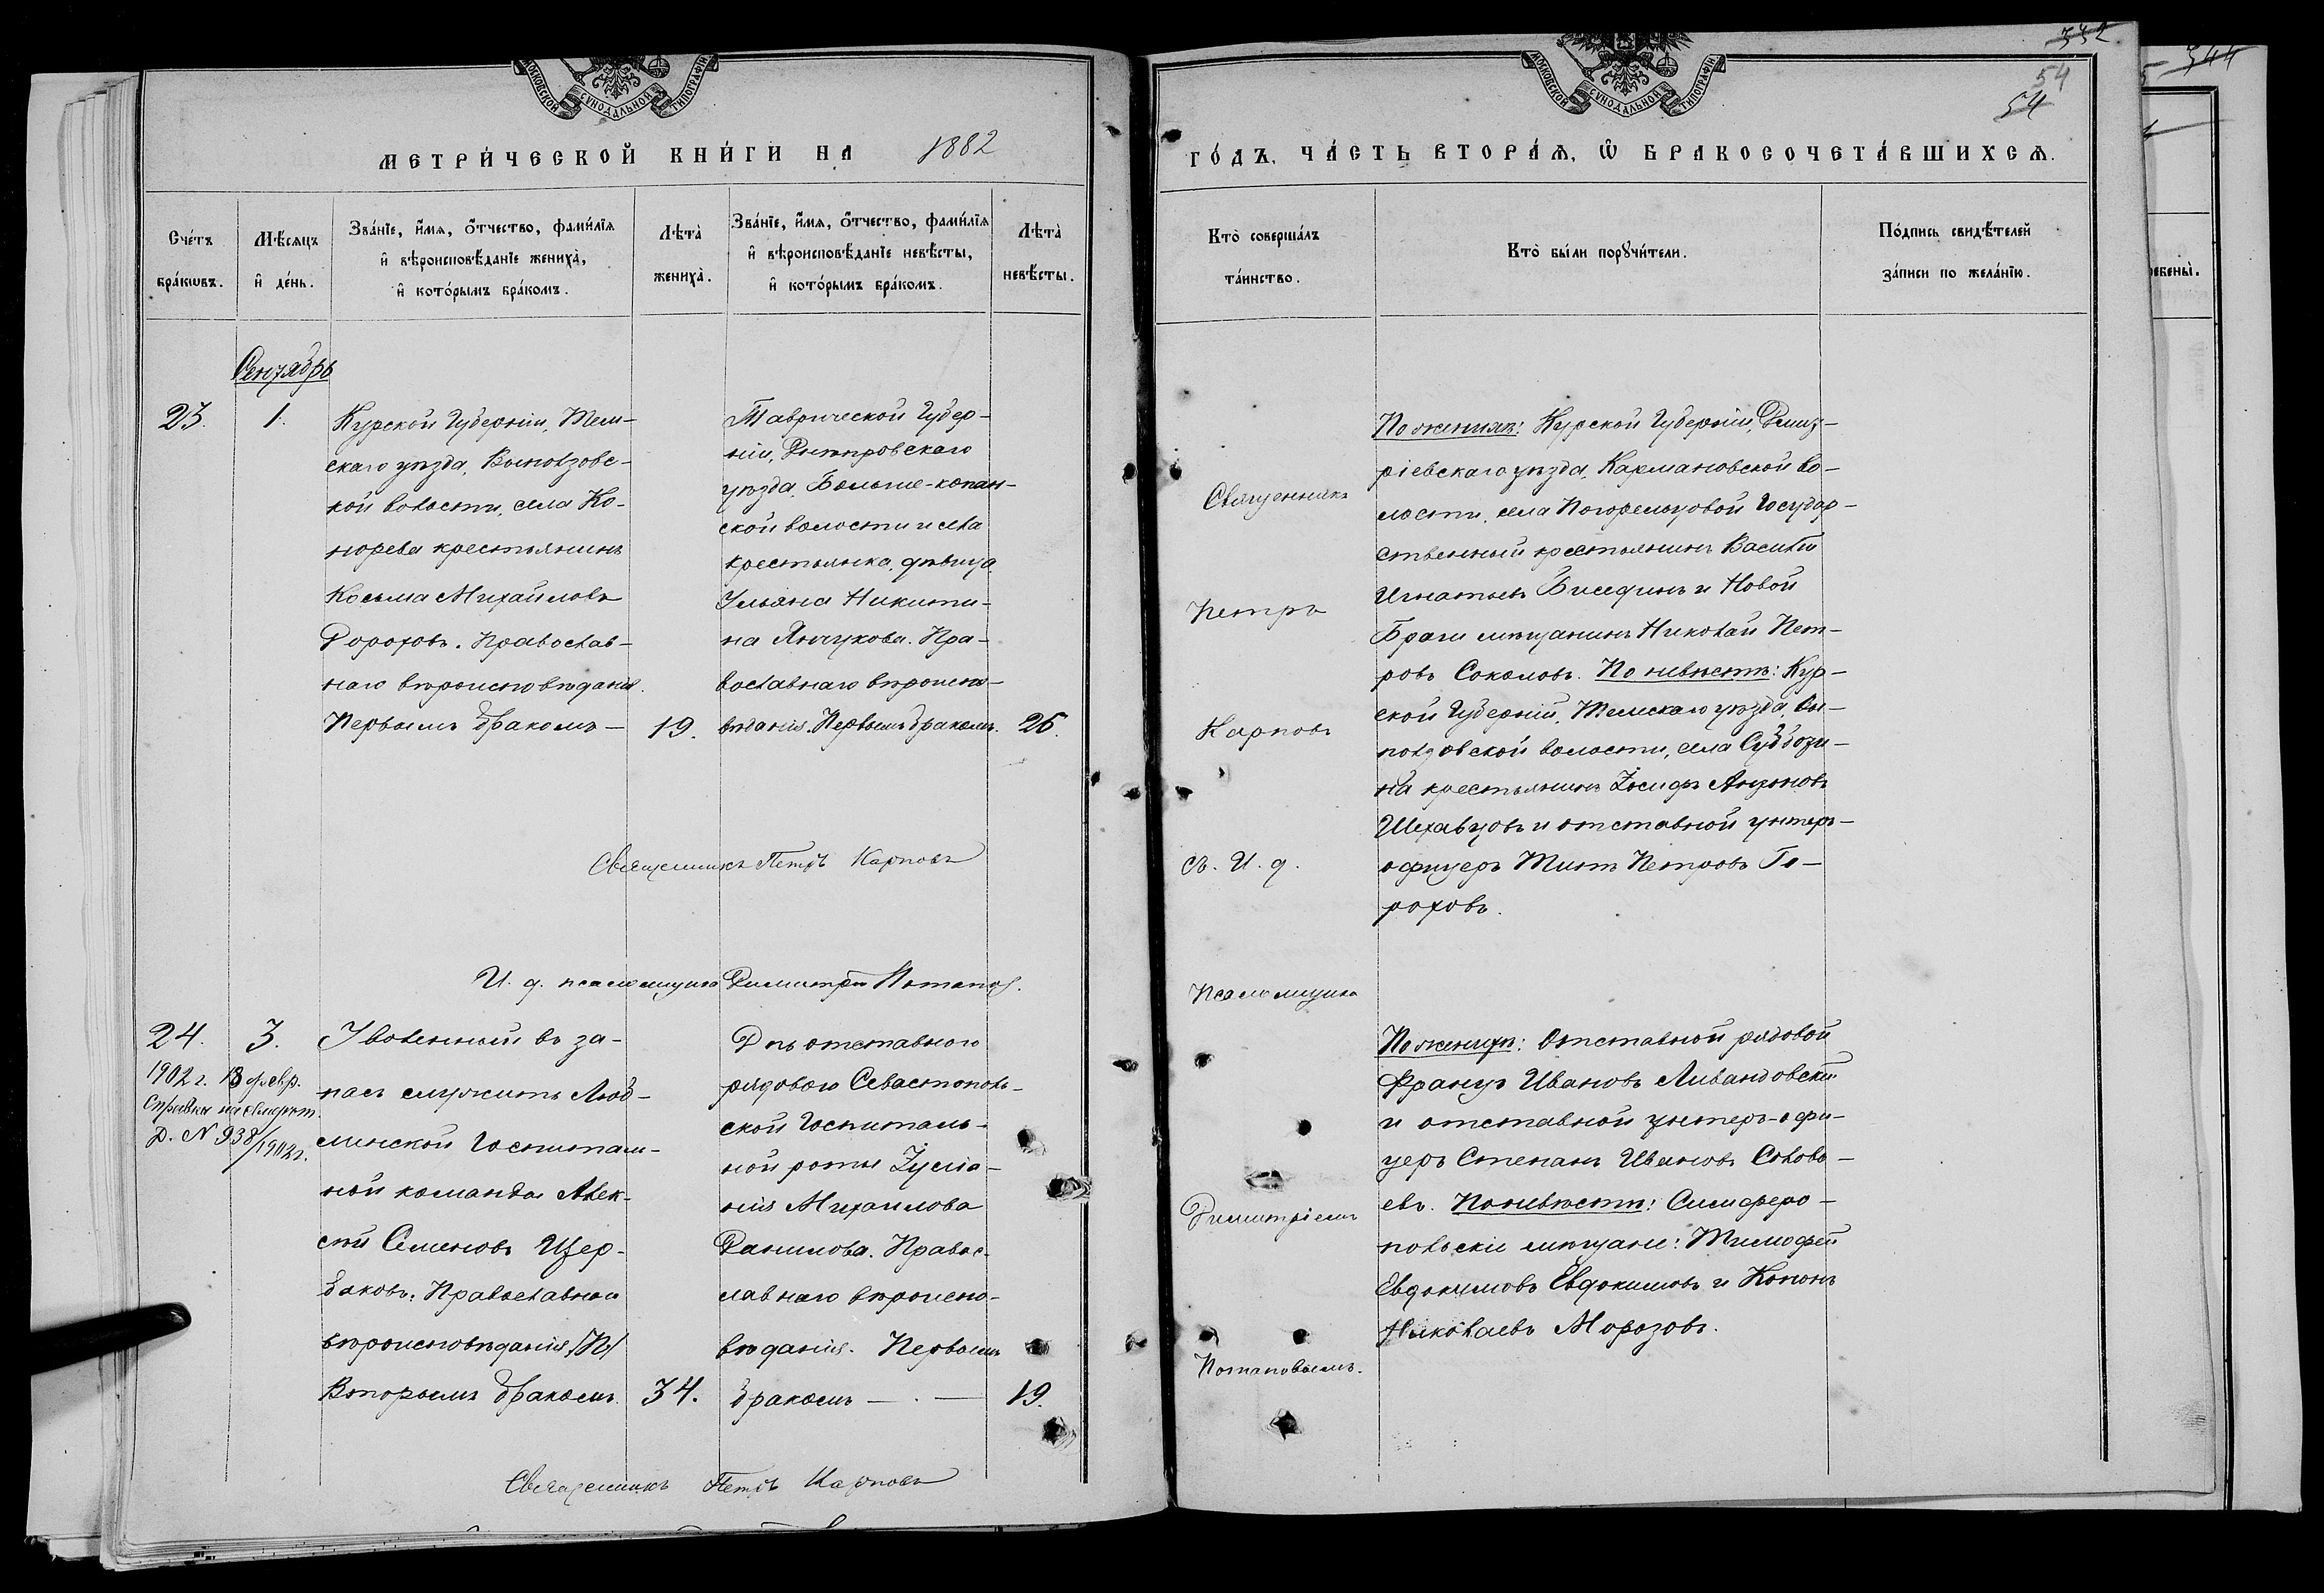 МОСКОВСКОЙ СѴНОДАЛЬНОЙ ТИПОГРАФІИ
МЕТРИ́ЧЕСКОЙ КНИ́ГИ НА 1882
Сче́тъ бра́кѡвъ.
Мѣ́сяцъ и҆ де́нь.
Зва́нїе, и҆́мѧ, ѻ҆́тчество, фами́лїѧ
и҆ вѣроисповѣ́данїе жениха̀,
и҆ кото́рымъ бра́комъ.
Лѣта̀ жениха̀.
Зва́нїе, и҆́мѧ, ѻ҆́тчество, фами́лїѧ
и҆ вѣроисповѣ́данїе невѣ́сты,
и҆ кото́рымъ бра́комъ.
Лѣта̀ невѣ́сты.
Сентябрь
23.
1.
Курской Губерніи, Тим-
скаго уѣзда,
кой волости, села Ко-
норева крестьянинъ
Косьма Михайловъ
Дороховъ. Православ-
наго вѣроисповѣданія.
Первымъ бракомъ —
19.
Таврической Губер-
ніи, Днѣпровскаго
уѣзда, Больше-копан-
ской волости и села
крестьянка, дѣвица
Ульяна Никити-
на Янчукова. Пра-
вославнаго вѣроиспо-
вѣданія. Первымъ бракомъ.
26.
Священникъ Петръ Карповъ
И. д. псаломщика Димитрій Потаповъ.
24.
3.
1902 г. 13 февр.
Справка
Д. N 938/1902 г.
Уволенный въ за-
пасъ служитель Люб-
линской Госпиталь-
ной команды Алек-
сѣй Семеновъ Щер-
баковъ. Православнаго
вѣроисповѣданія
Вторымъ бракомъ.
34.
Дчь отставного
рядового Севастополь-
ской Госпиталь-
ной роты Іуліа-
нія Михаилова
Данилова. Правос-
лавнаго вѣроиспо-
вѣданія. Первымъ
бракомъ — . —
19.
Священникъ Петръ Карповъ
МОСКОВСКОЙ СѴНОДАЛЬНОЙ ТИПОГРАФІИ
332
54
54
ГО́ДЪ, ЧА́СТЬ ВТОРА́Ѧ, Ѽ БРАКОСОЧЕТА́ВШИХСѦ.
Кто̀ соверша́лъ
та́инство.
Кто̀ бы́ли порꙋчи́тели.
По́дпись свидѣ́телей
за́писи по жела́нїю.
Священникъ
Петръ
Карповъ
съ И. д.
Псаломщика
Димитріемъ
Потаповымъ.
По женихѣ: Курской Губерніи, Дмит-
ріевскаго уѣзда, Кармановской во-
лости, села Погорельцовой Государ-
ственный крестьянинъ Василій
Игнатьевъ Биседин и Новой
Праги мѣщанинъ Николай Пет-
ровъ Соколовъ. По невѣстѣ: Кур-
ской Губерніи, Тимскаго уѣзда,
волости, села Субботи-
на крестьянинъ Іосифъ Антоновъ
Шехавцовъ и отставной унтеръ-
офицеръ Титъ Петровъ Го-
роховъ.
По женихѣ: Отставной рядовой
Францъ Ивановъ Ливандовскій
и отставной унтеръ-офи-
церъ Степанъ Ивановъ Солово-
евъ. По невѣстѣ: Симферо-
польскіе мѣщане: Тимофей
Евдокимовъ Евдокимовъ и Кононъ
Николаевъ Морозовъ.
344